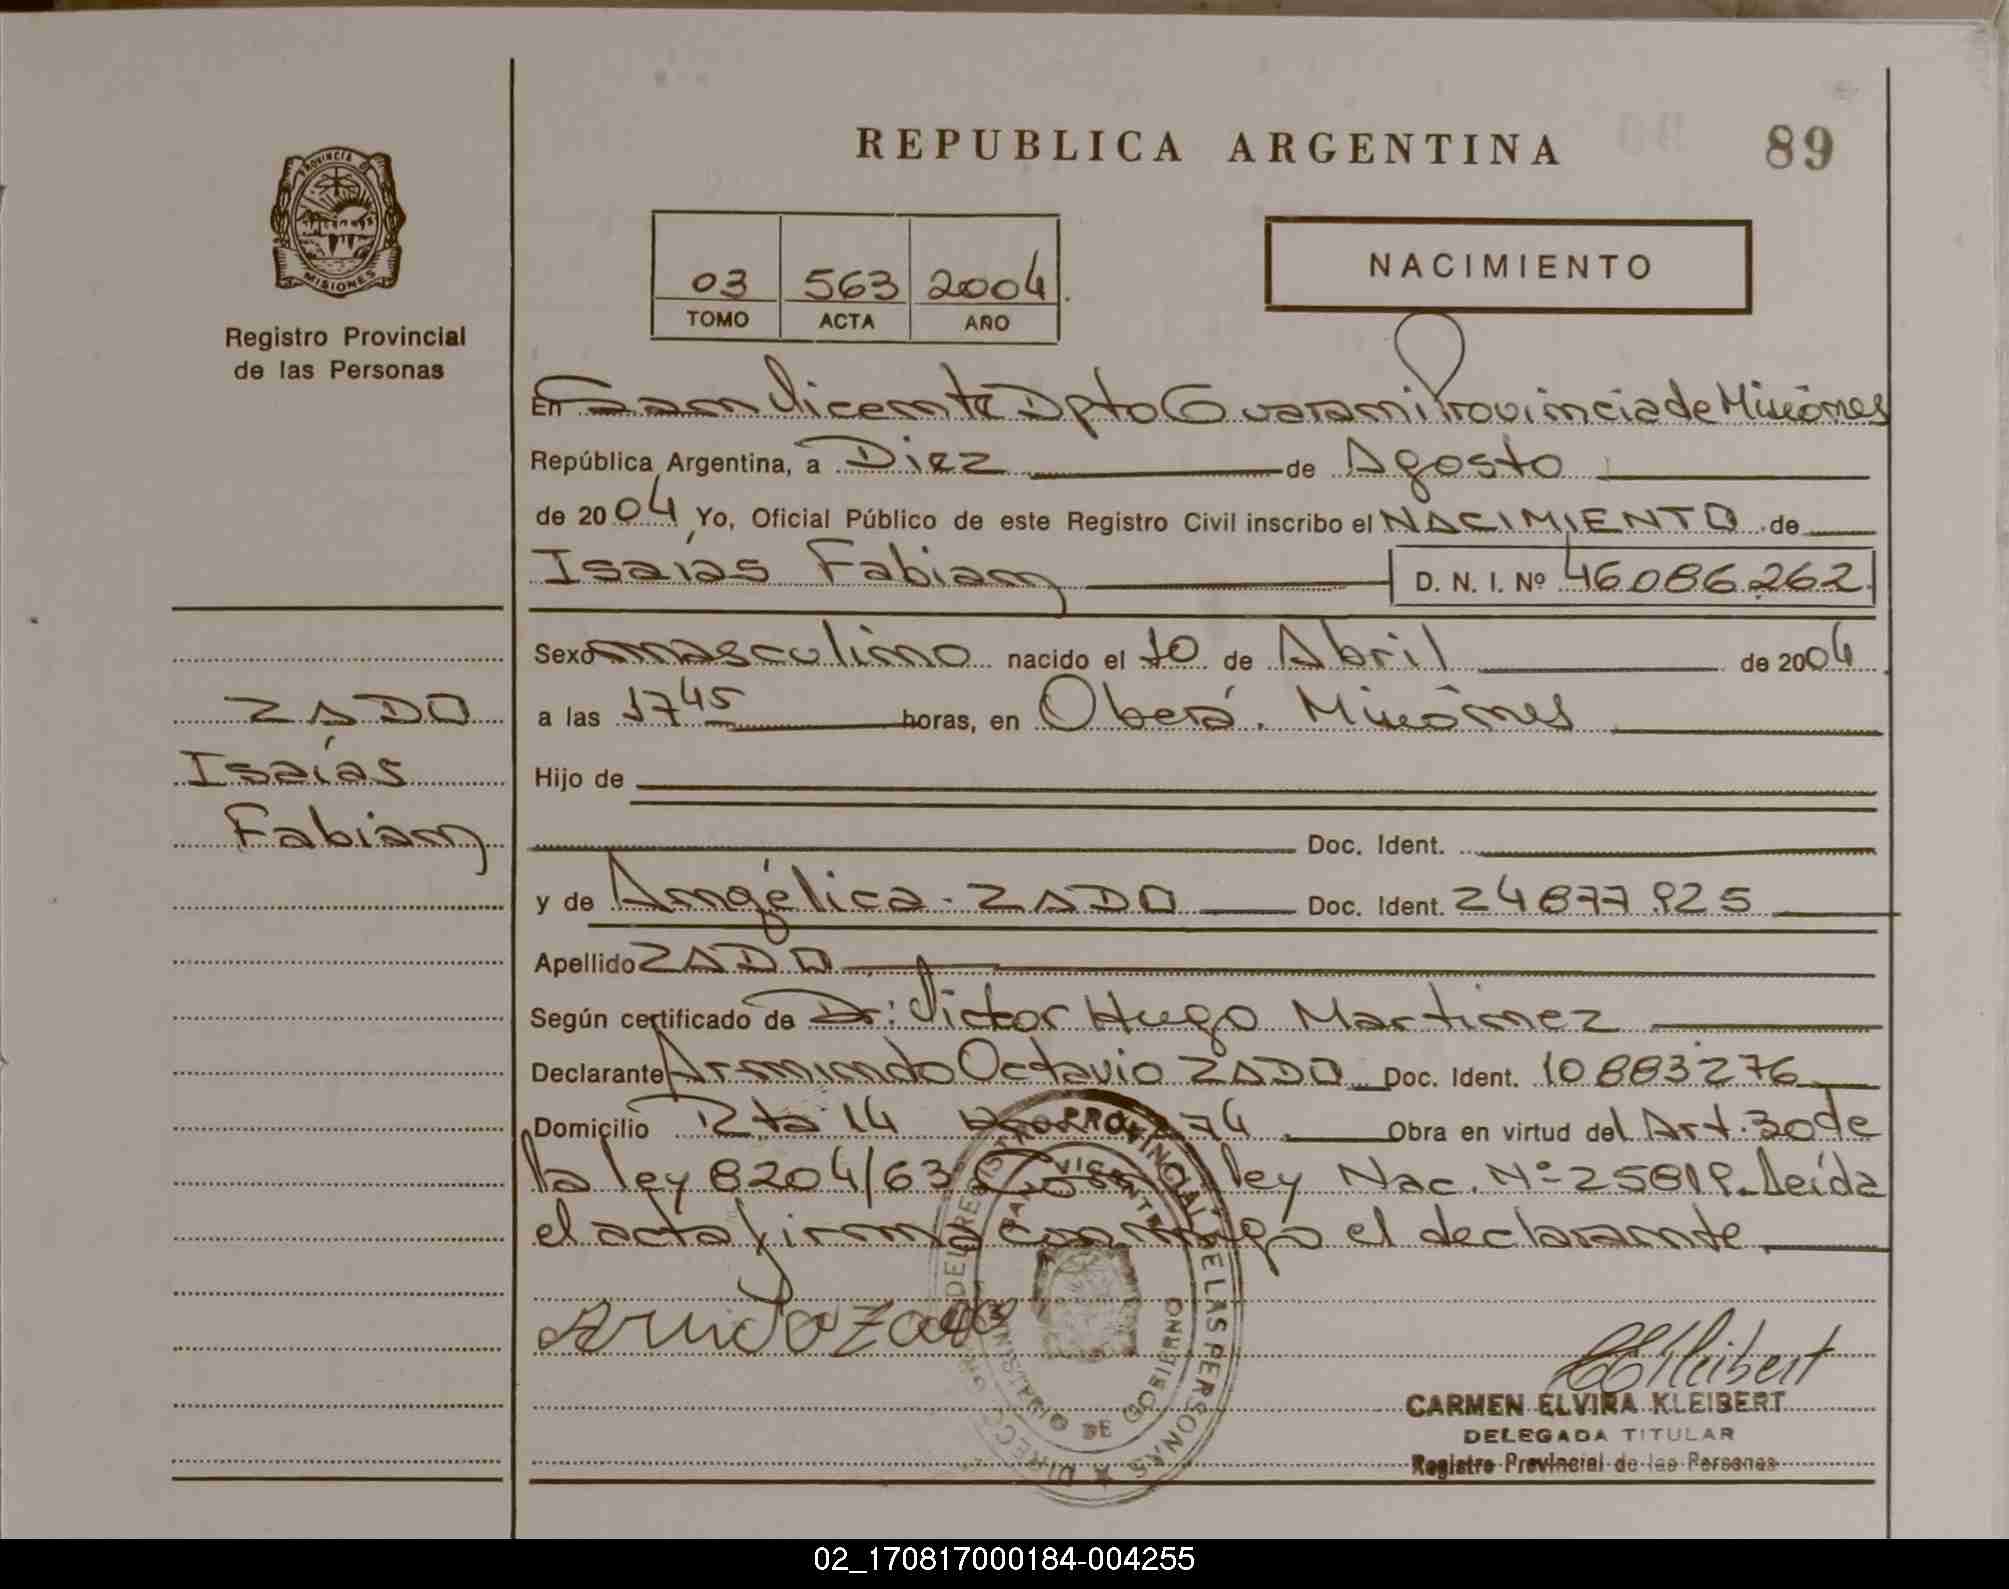 REPUBLICA ARGENTINA
89
PROVINCIA DE
MISIONES
Registro Provincial
de las Personas
03 563 2004
TOMO ACTA AÑO
NACIMIENTO
En San Vicente Dpto Guaraní Provincia de Misiones
República Argentina, a Diez de Agosto
de 2004 Yo, Oficial Público de este Registro Civil inscribo el NACIMIENTO de
Isaías Fabian D. N. I. Nº 46.086.262
Sexo masculino nacido el 10 de Abril de 2004
a las 17 45 horas, en Oberá. Misiones
Hijo de
Doc. Ident.
y de Angélica ZADO Doc. Ident. 24877925
Apellido ZADO
Según certificado de Dr: Victor Hugo Martinez
Declarante Armindo Octavio ZADO Doc. Ident. 10883276
Domicilio Rta 14 74 Obra en virtud del Art. 30 de
la ley 8204/63 ley Nac. Nº 25819. Leída
el acta firma conmigo el declarante
ZADO
Isaías
Fabian
CARMEN ELVIRA KLEIBERT
DELEGADA TITULAR
Registro Provincial de las Personas
02_170817000184-004255